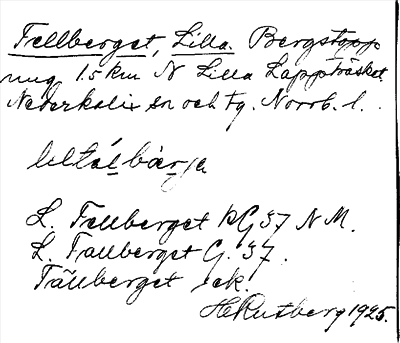 Fellberget, Lilla. Bergstopp
ung 1.5 km N Lilla Lappträsket.
Nederkalix sn och tg. Norrb. l.
L. Fellberget KG 37 N M.
L. Fallberget G. 37.
Tällberget ek.
H Rutberg 1925.